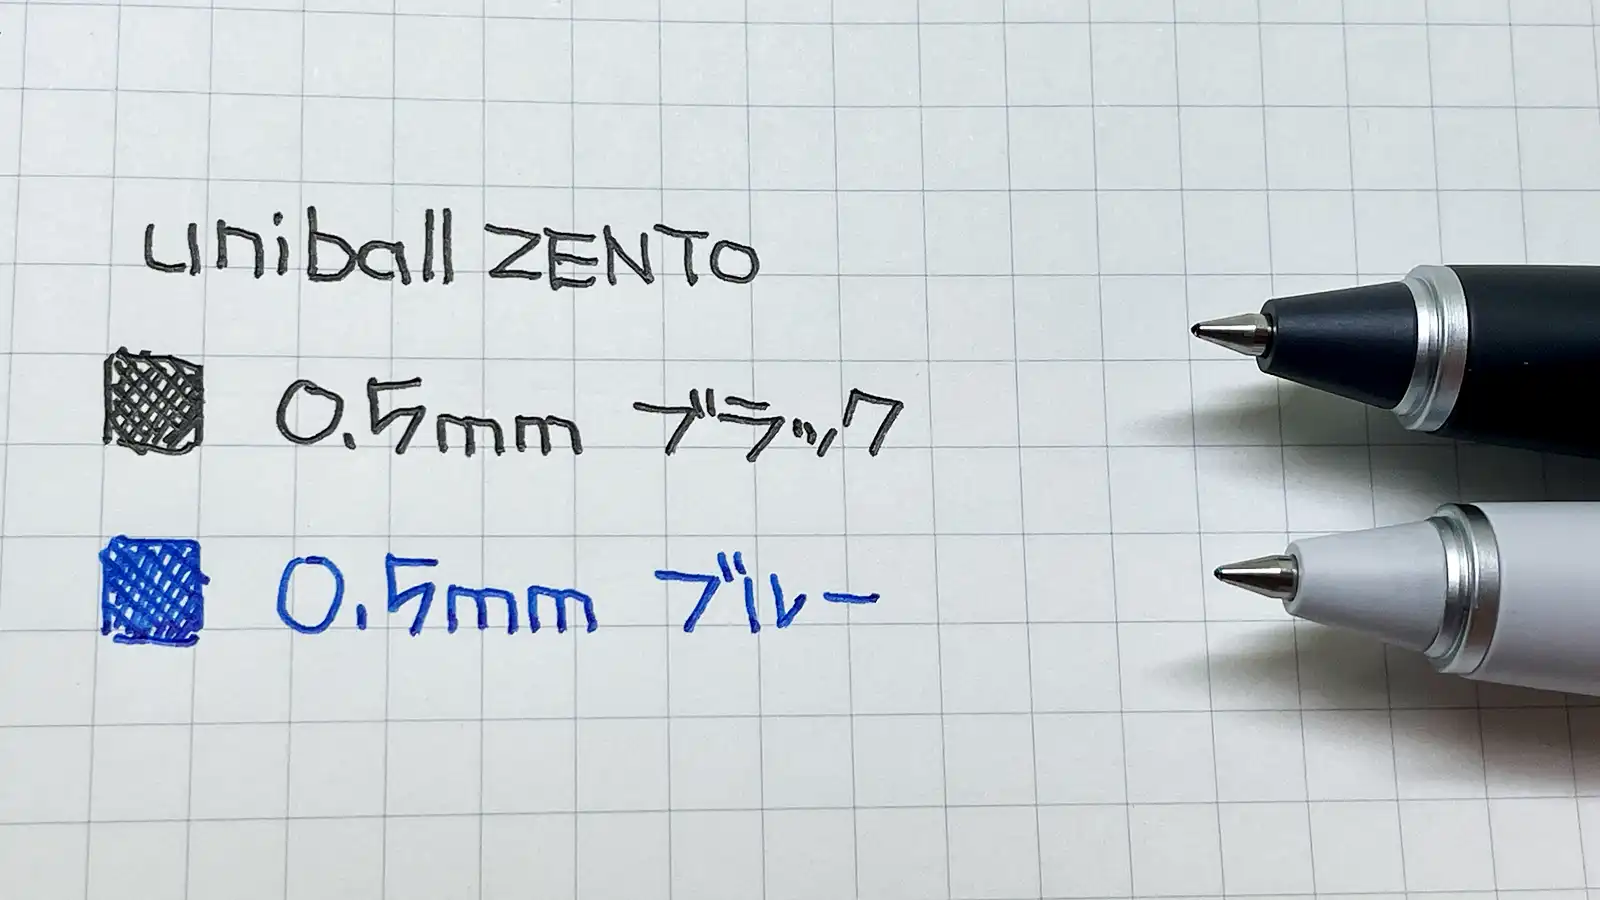 uniball ZENTO
0.5mm ブラック
0.5mm ブルー